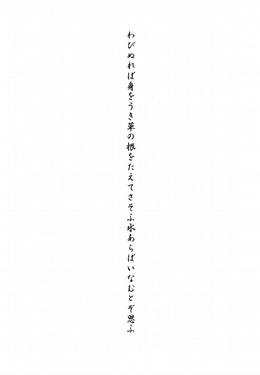 わびぬれば身をうき草の根をたえてさそふ水あらばいなむとぞ思ふ